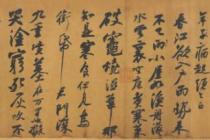 年子病起須已白
春江欲入戶雨勢來
不已小屋如漁舟濛濛
水雲裏空庖煮寒菜
破竈燒濕葦那
知是寒食但見烏
銜帋君門深
九重墳墓在萬里也擬
哭塗窮死灰吹不